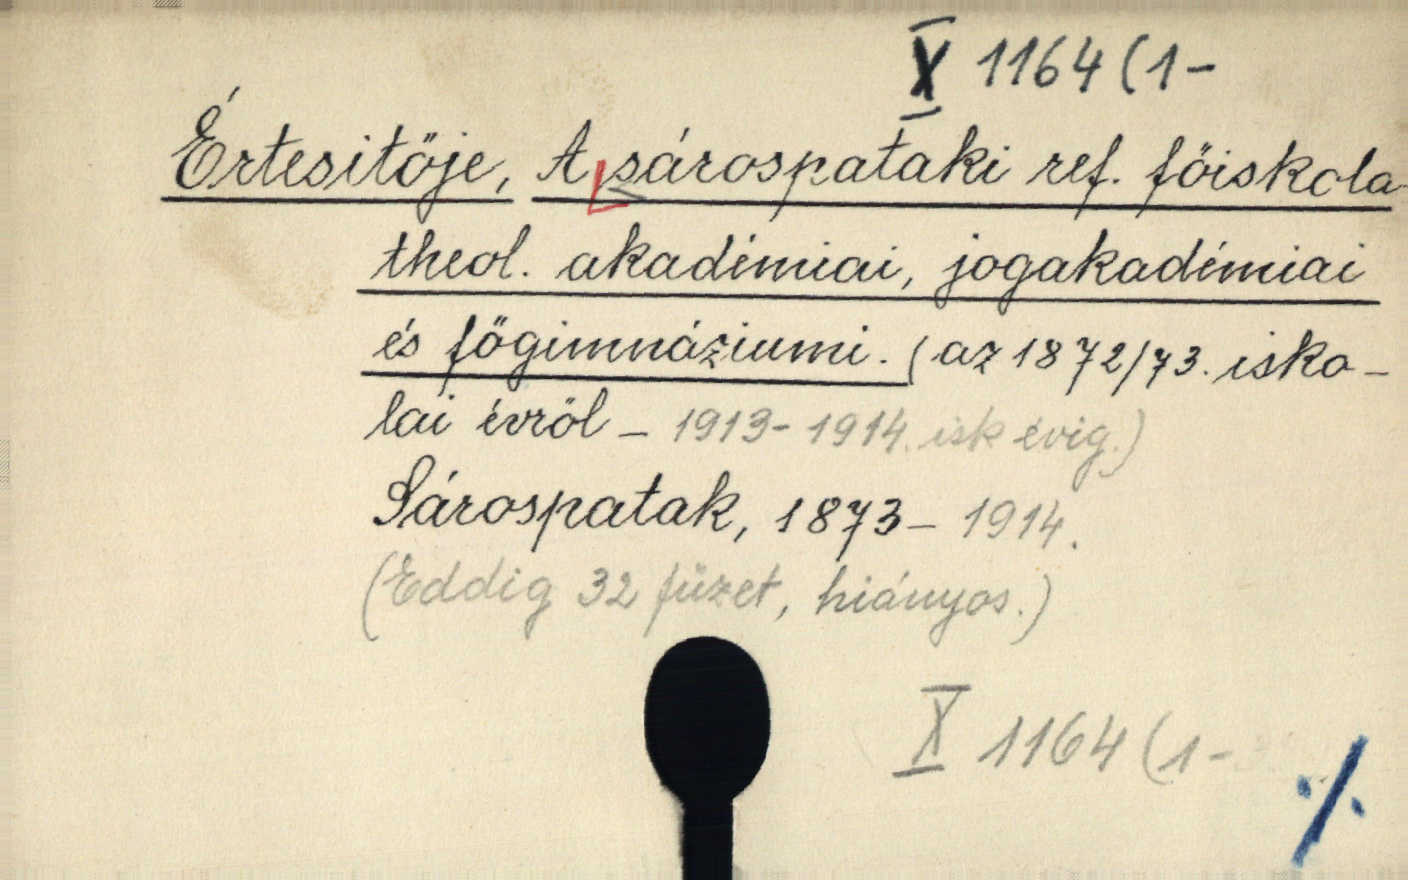 X 1164 (1-
Értesitője, A sárospataki ref. főiskola
theol. akadémiai, jogakadémiai
és főgimnáziumi. (az 1872/73. isko-
lai évről - 1913-1914. isk évig.)
Sárospatak, 1873-1914.
(Eddig 32 füzet, hiányos.)
X 1164 (1-
./.